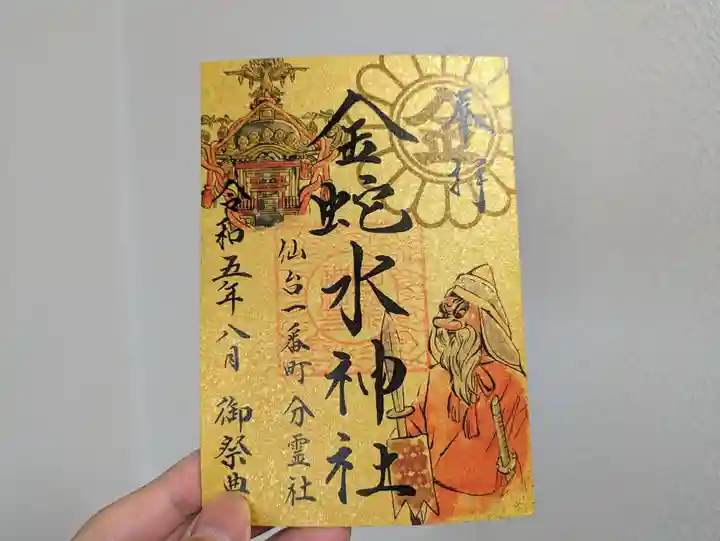 奉拝
金
金蛇水神社
仙台一番町分霊社
令和五年八月 御祭典